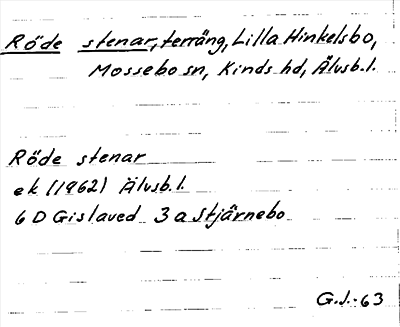 Röde stenar, terräng, Lilla Hinkelsbo,
Mossebo sn, Kinds hd, Älvsb.l.
Röde stenar
ek (1962) Älvsb.l.
6 D Gislaved 3 a Stjärnebo
G.J.-63